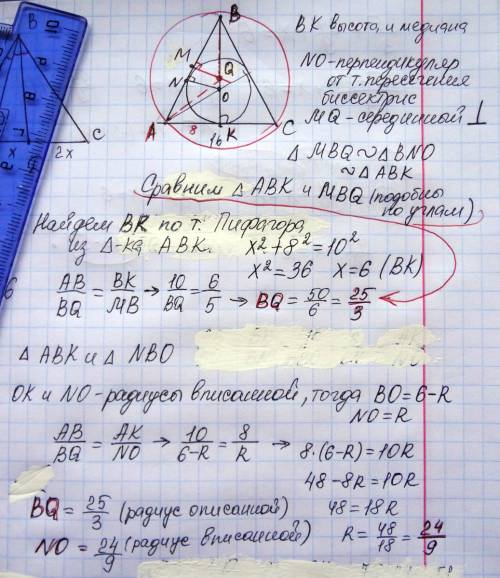 BK высота, и медиана
NO-перпендикуляр
от т. пересечения
биссектрис
MQ-серединный ⊥
△ MBQ ∾ △BNO
∾ △ABK
Сравним △ ABK и MBQ (подобны
по углам)
Найдем BK по т. Пифагора
из △-ка ABK.
x²+8²=10²
x²=36 x=6 (BK)
AB/BQ = BK/MB → 10/BQ = 6/5 → BQ = 50/6 = 25/3
△ ABK и △ NBO
OK и NO-радиусы вписанной, тогда BO=6-R
NO=R
AB/BQ = AK/NO → 10/6-R = 8/R → 8·(6-R)=10R
48-8R=10R
48=18R
R = 48/18 = 24/9
BQ = 25/3 (радиус описанной)
NO = 24/9 (радиус вписанной)
B
M
N
Q
O
A
8
K
16
C
B
C
x
2x